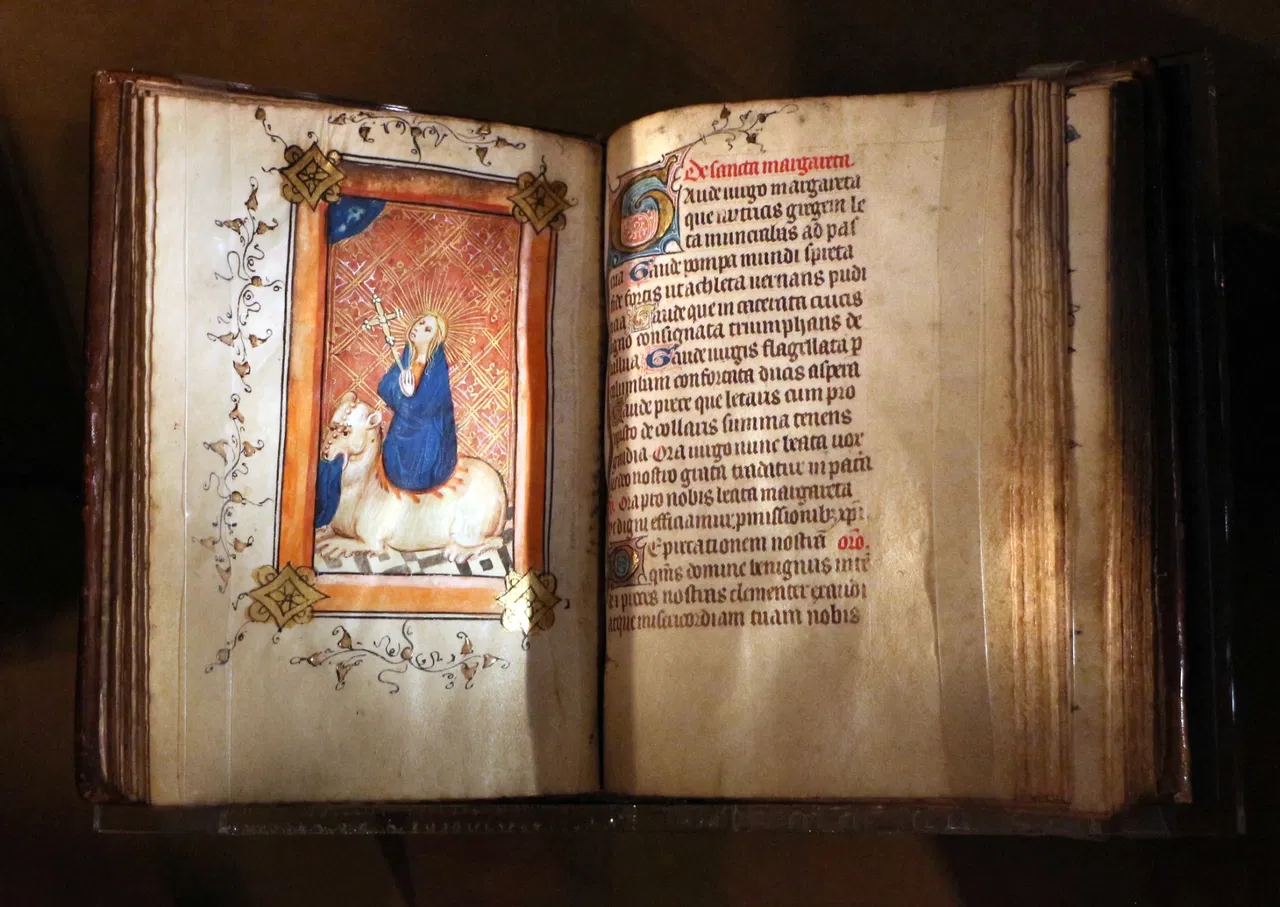 De sancta margareta
Gaude uirgo margareta
que nutricis gregem le
ta muneribus ad pas
cua Gaude pompa mundi spreta
fide fortis ut achleta uernans pudi
Gaude que in carcerata crucis
igno consignata triumphans de
Gaude uirgis flagellata p
confortata ducis aspera
Gaude prece que letaris cum pro
de collaris summa tenens
gaudia Ora uirgo nunc beata uox
deo nostro grata traditur in patria
Ora pro nobis beata margareta
digni efficiamur pmissionib xpi
Deprecationem nostram oro.
qms domine benignus inte
di preces nostras clementer exaudi
atque misericordiam tuam nobis